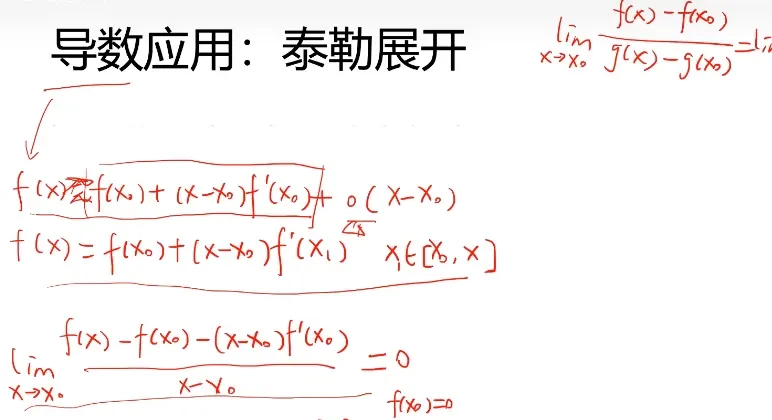 导数应用：泰勒展开
lim x→x₀ (f(x)-f(x₀))/(g(x)-g(x₀)) =
f(x) f(x₀)+(x-x₀)f'(x₀)+o(x-x₀)
f(x)=f(x₀)+(x-x₀)f'(x₁) x₁∈[x₀,x]
lim x→x₀ (f(x)-f(x₀)-(x-x₀)f'(x₀))/(x-x₀) =0
f(x₀)=0